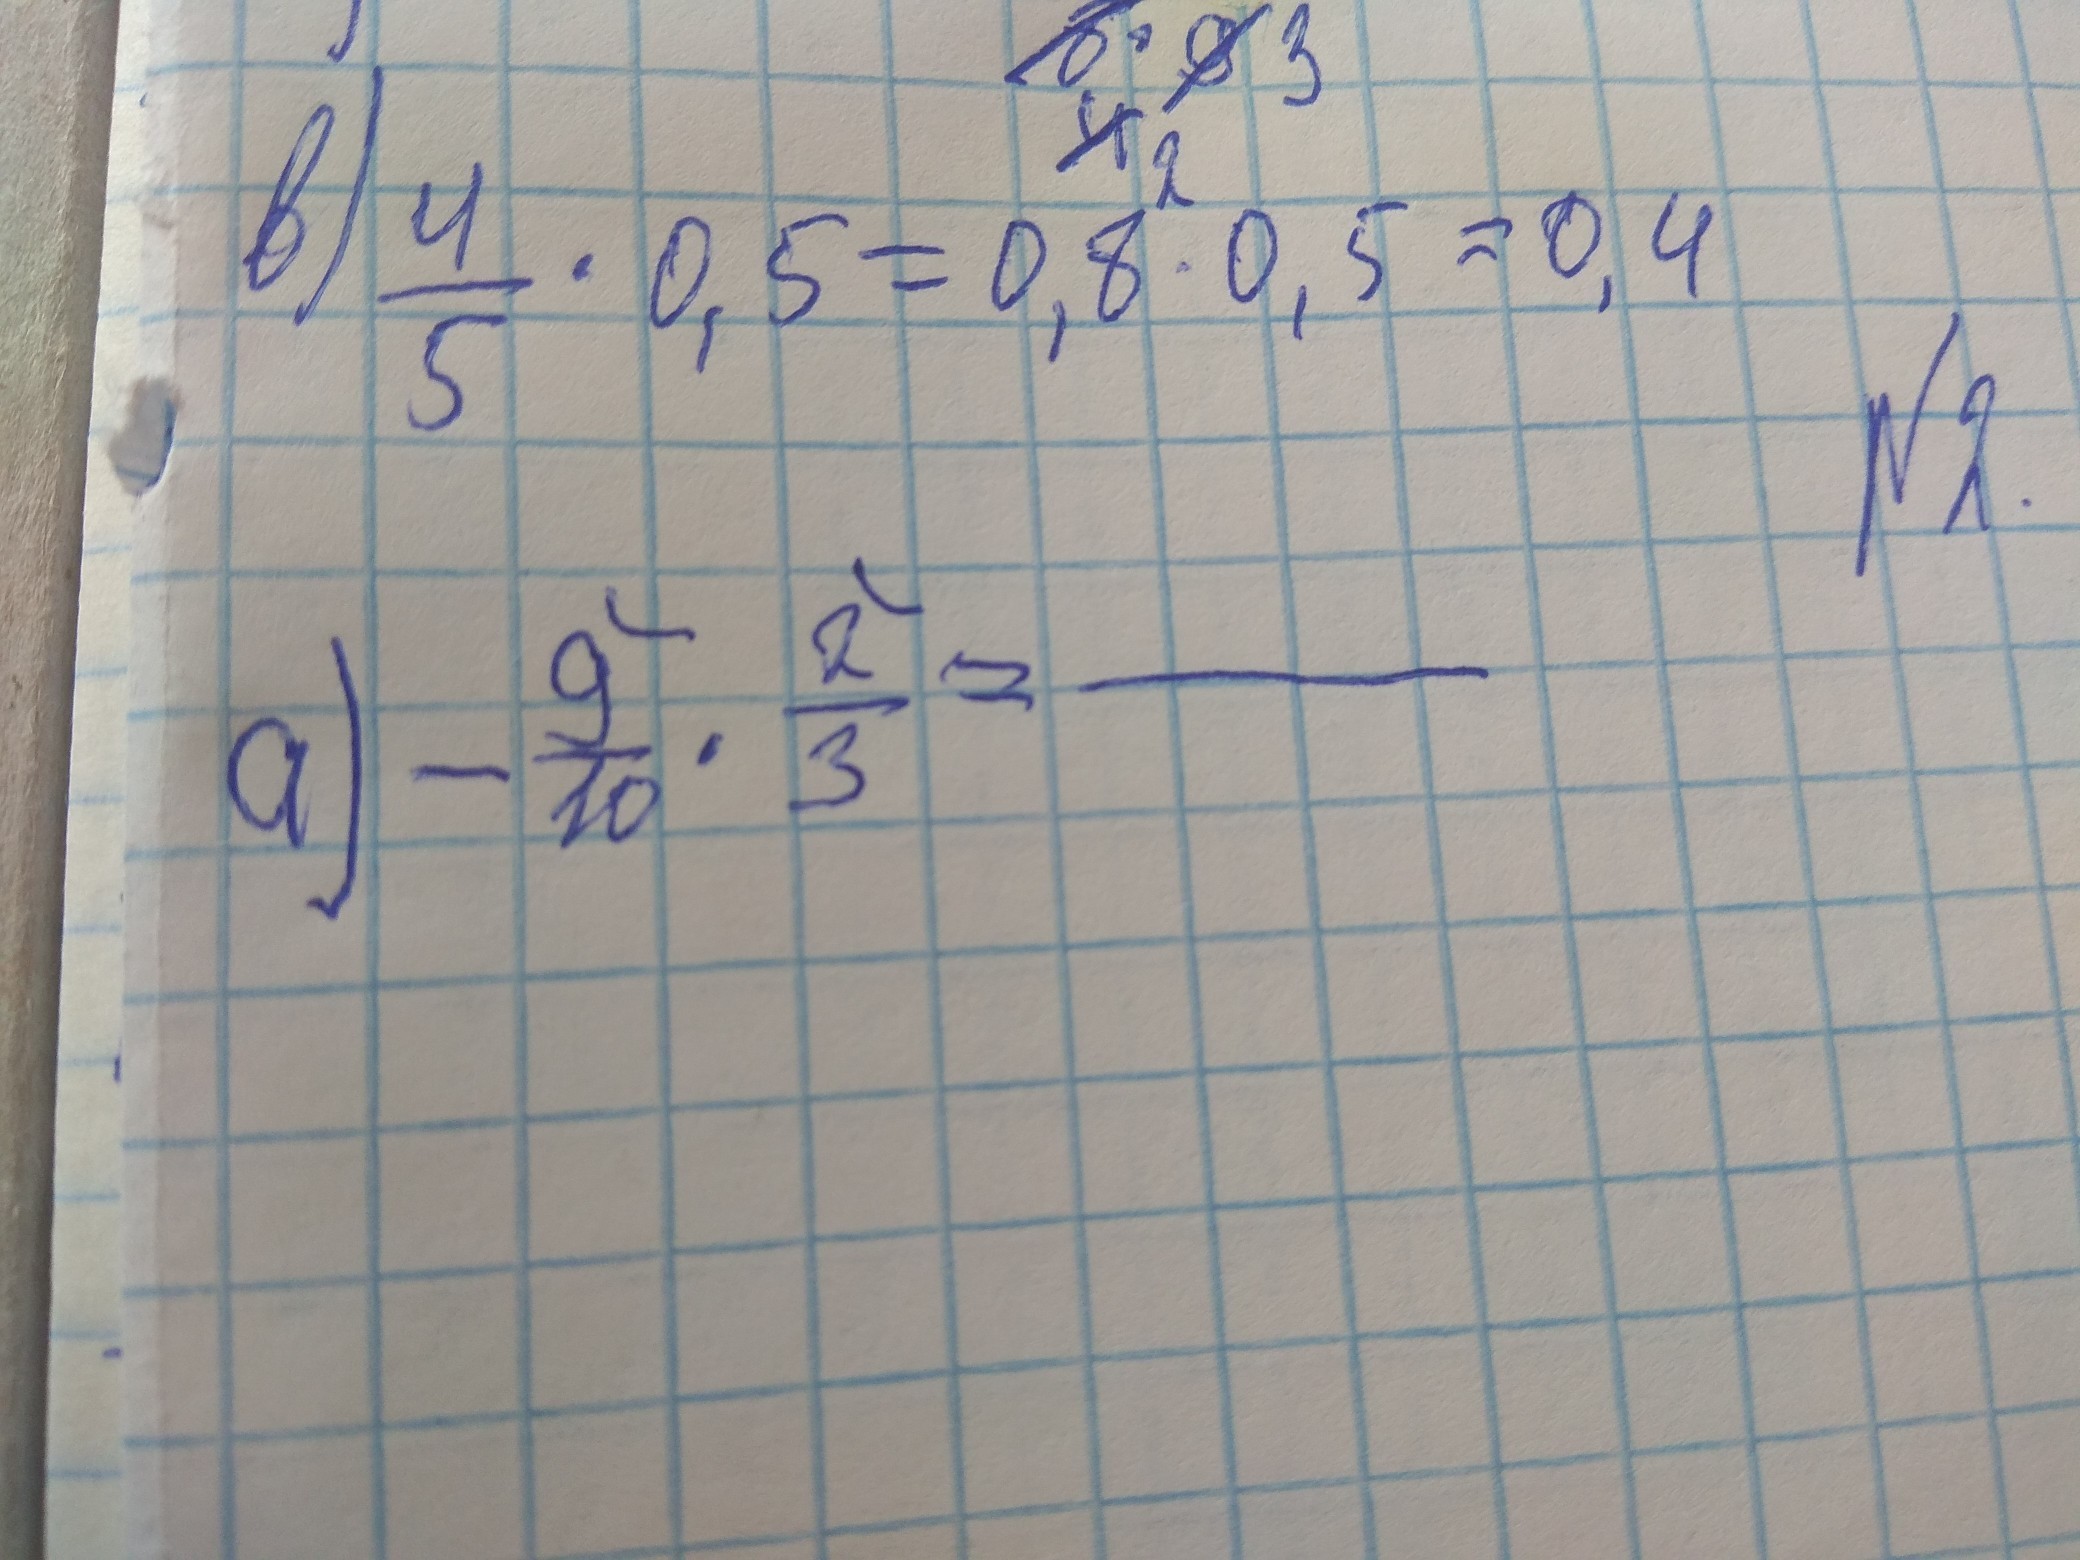 6 · 8 3
4 2
в) 4/5 · 0,5 = 0,8 · 0,5 = 0,4
№2.
а) - 9/10 · 2/3 =